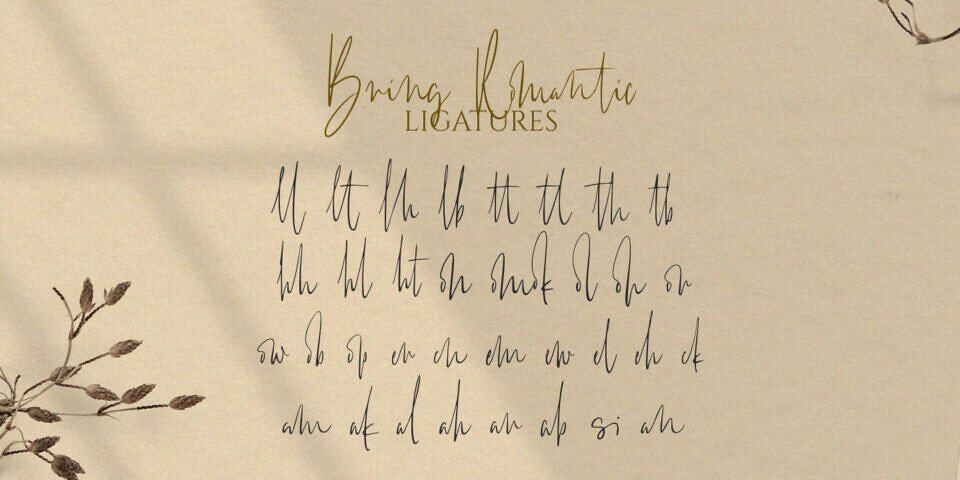 Bring Romantic
LIGATURES
ll lt lh lb tt tl th tb
hh hl ht on om ok ol oh or
ow ob op er en em ew el eh ck
am ak al ah an ab si an